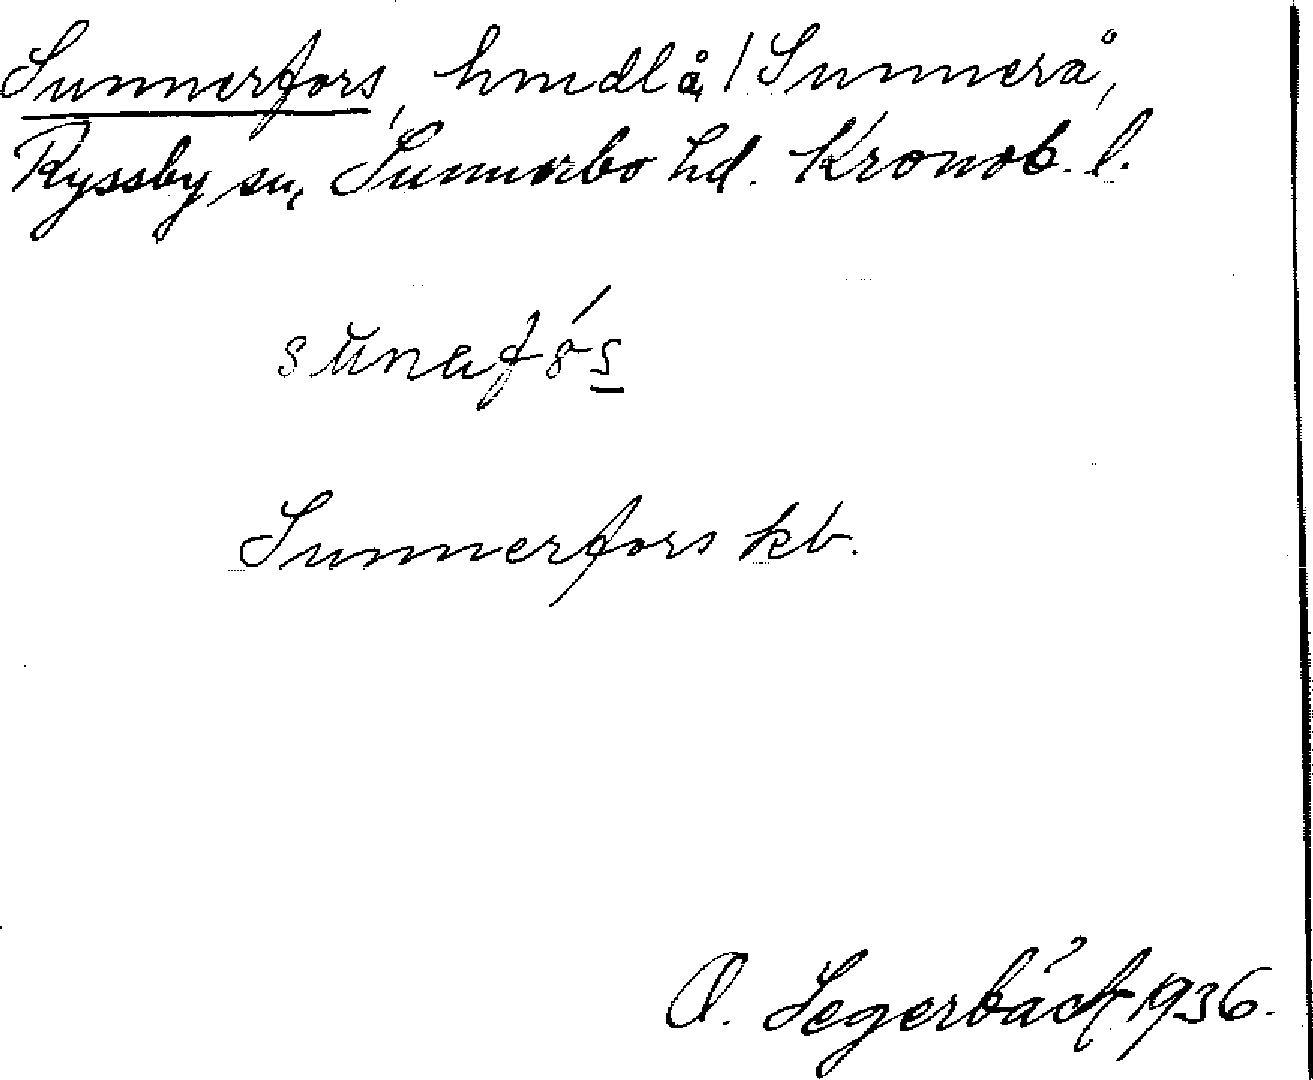 Sunnerfors, hmdl å / Sunnerå,
Ryssby sn, Sunnerbo hd. Kronob. l.
Sunnerfors kb.
O. Segerbäck 1936.